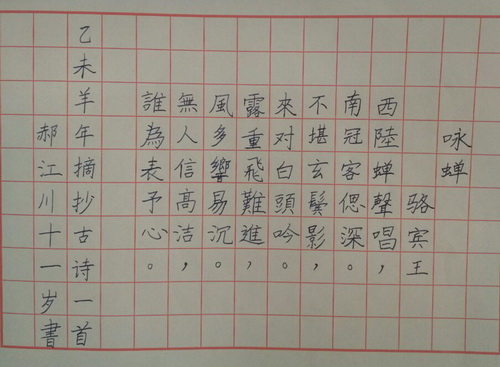 咏蝉
骆宾王
西陸蝉聲唱，
南冠客偲深。
不堪玄鬓影，
來对白頭吟。
露重飛難進，
風多響易沉。
無人信高洁，
誰為表予心。
乙未羊年摘抄古诗一首
郝江川十一岁書